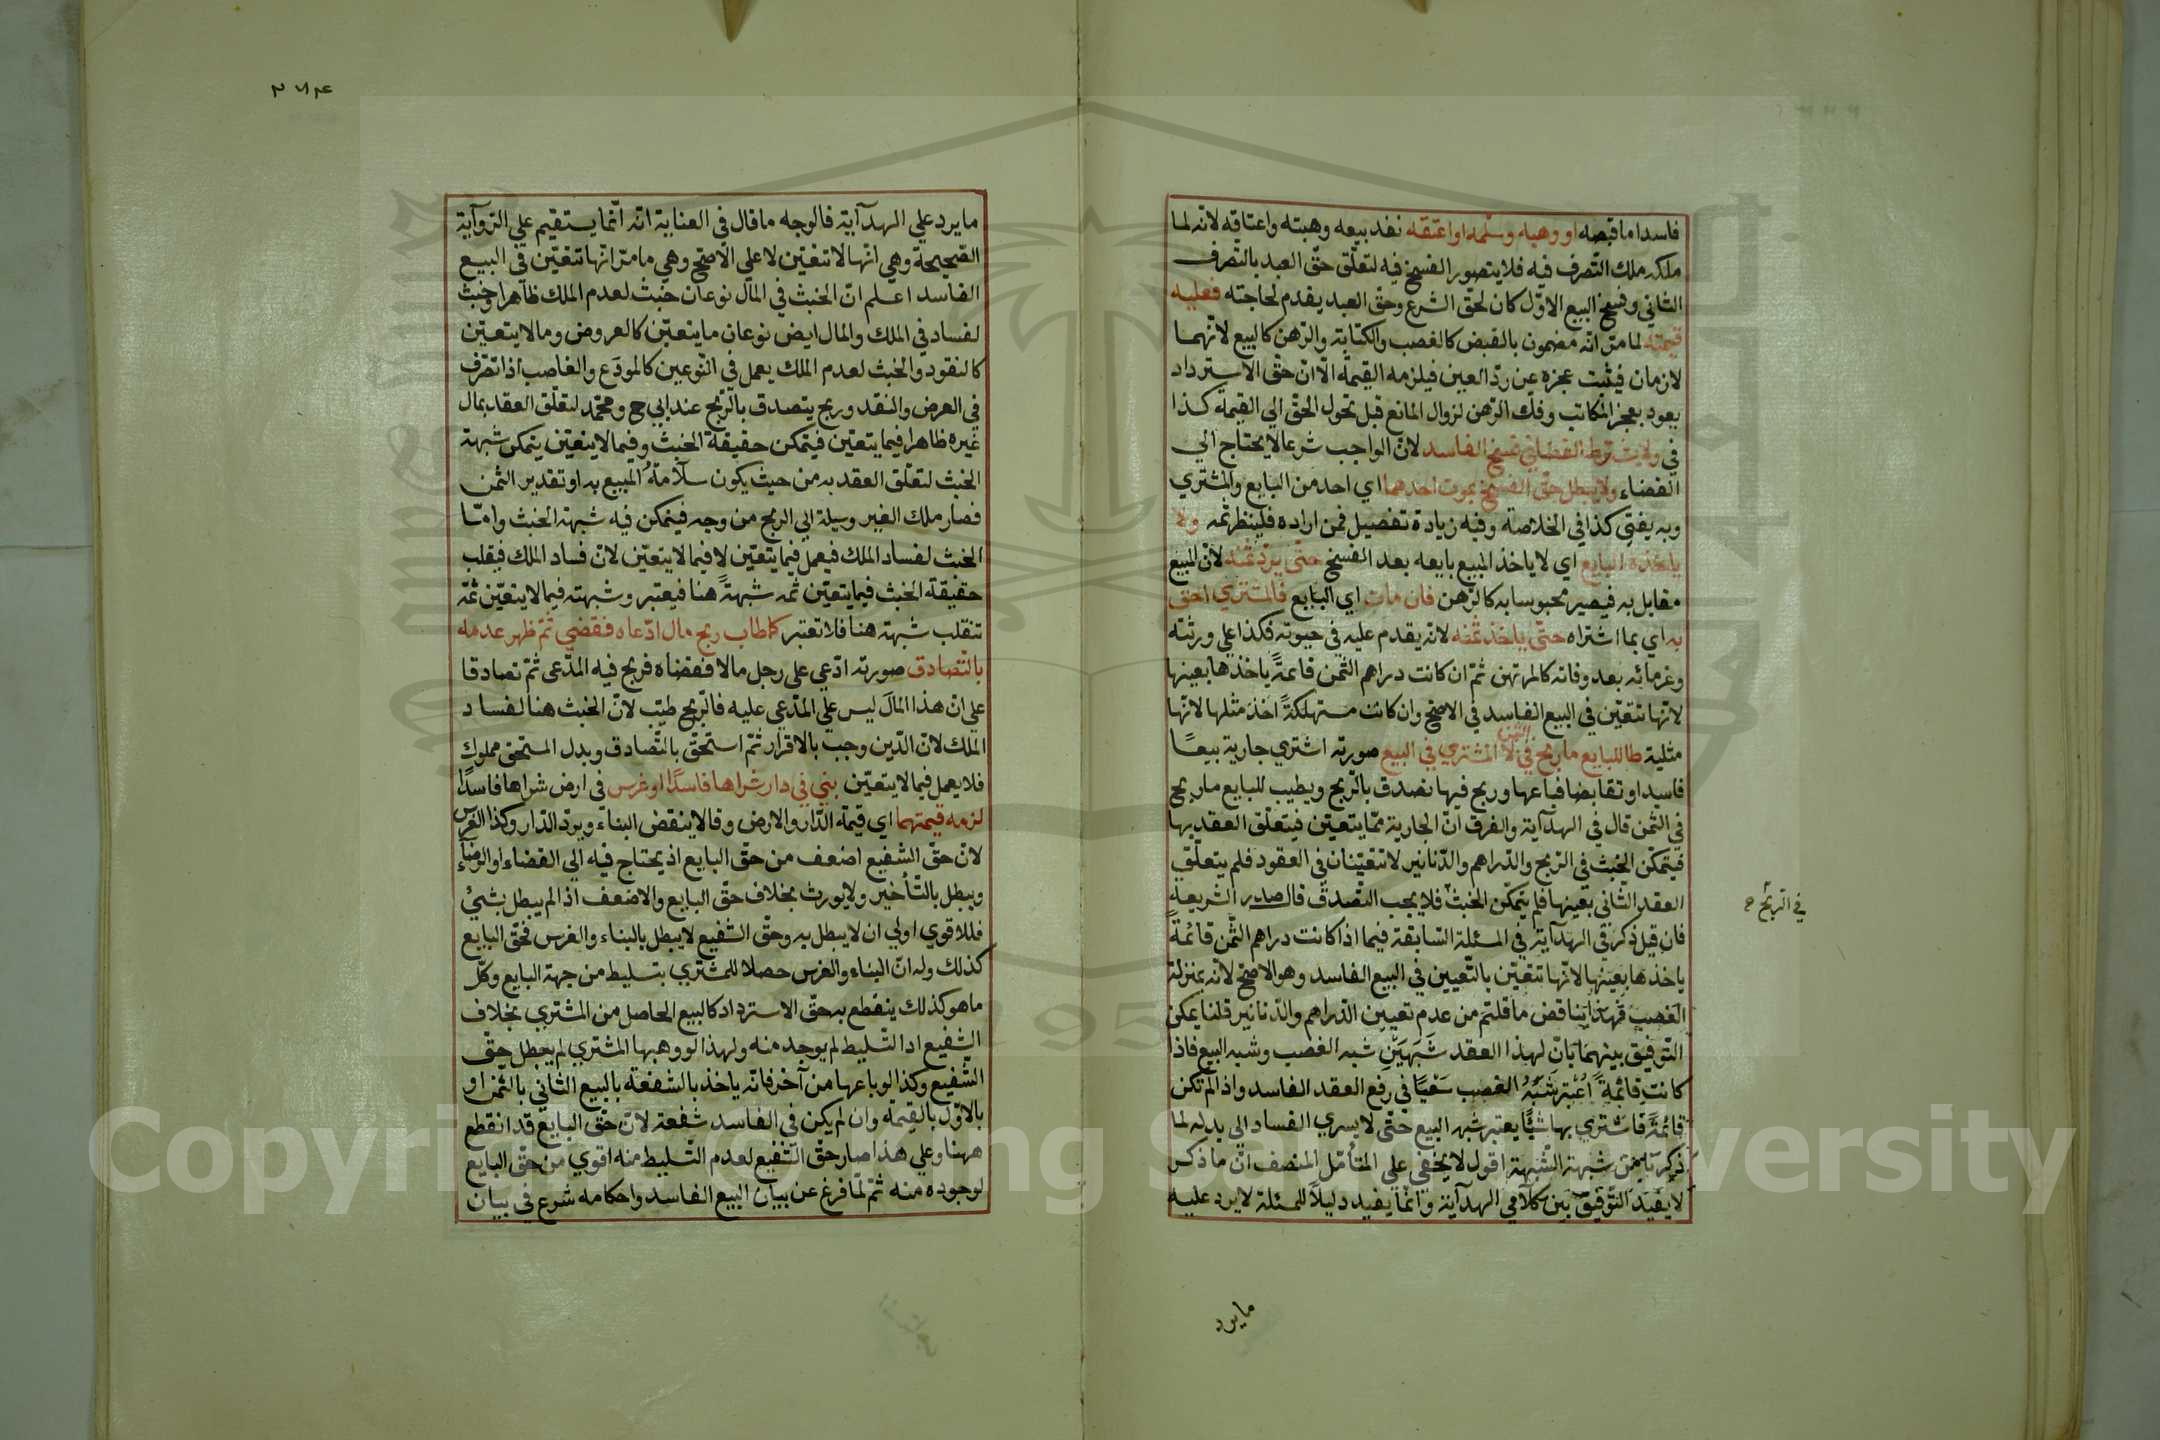 فاسدا ما قبضه او وهبه وسلمه او اعتقه نفد بيعه وهبته واعتاقه لانه لما
ملكه ملك التصرف فيه فلا يتصور الفسخ فيه لتعلق حق العبد بالتصرف
الثاني وفسخ البيع الاول كان لحق الشرع وحق العبد يقدم لحاجته فعليه
قيمته لما مر انه مضمون بالقبض كالغصب والكتابة والرهن كالبيع لانهما
لازمان فيثبت عجزه عن رد العين فيلزمه القيمة الا ان حق الاسترداد
يعود بعجز المكاتب وفك الرهن لزوال المانع قبل تحول الحق الي القيمة كذا
في ولا يشترط القضا في فسخ الفاسد لان الواجب شرعا لا يحتاج الي
القضاء ولا يبطل حق الفسخ بموت احدهما اي احد من البايع والمشتري
وبه يفتي كذا في الخلاصة وفيه زيادة تفصيل فمن اراده فلينظر ثمه ولا
ياخذه البايع اي لا ياخذ المبيع بايعه بعد الفسخ حتى يرد ثمنه لان المبيع
مقابل به فيصير محبوسا به كالرهن فان مات اي البايع فالمشتري احق
به اي بما اشتراه حتى ياخذ ثمنه لانه يقدم عليه في حيوته فكذا علي ورثته
وغرمائه بعد وفاته كالمرتهن ثم ان كانت دراهم الثمن قائمة ياخذها بعينها
لانها تتعين في البيع الفاسد في الاصح وان كانت مستهلكة اخذ مثلها لانها
مثلية طا للبايع ما ربح في الثمن لا المشتري في البيع صورته اشتري جارية بيعا
فاسدا وتقابضا فباعها وربح فيها تصدق بالربح ويطيب للبايع ما ربح
في الثمن قال في الهدآية والفرق ان الجارية مما يتعين فيتعلق العقد بها
فيتمكن الخبث في الربح والدراهم والدنانير لا تتعينان في العقود فلم يتعلق
العقد الثاني بعينها فلم يتمكن الخبث فلا يجب التصدق قال صدر الشريعة
في الربح ح
فان قيل ذكر في الهدآية في المسئلة السابقة فيما اذا كانت دراهم الثمن قائمة
ياخذها بعينها لانها تتعين بالتعيين في البيع الفاسد وهو الاصح لانه بمنزلة
الغصب فهذا يناقض ما قلتم من عدم تعيين الدراهم والدنانير قلنا يمكن
التوفيق بينهما بان لهذا العقد شبهين شبه الغصب وشبه البيع فاذا
كانت قائمة اعتبر شبه الغصب سعيا في رفع العقد الفاسد واذا لم تكن
قائمة فاشتري بها شيئا يعتبر شبه البيع حتى لا يسري الفساد الي بدله لما
ذكرنا من شبهة الشبهة اقول لا يخفي علي المتأمل المنصف ان ما ذكر
لا يفيد التوفيق بين كلامي الهدآية وانما يفيد دليلا للمسئلة لا يرد عليه
ما يرد
٢٧٤
ما يرد علي الهدآية فالوجه ما قال في العناية انه انما يستقيم علي الروآية
الصحيحة وهي انها لا تتعين لا علي الاصح وهي ما مر انها تتعين في البيع
الفاسد اعلم ان الخبث في المال نوعان خبث لعدم الملك ظاهرا وخبث
لفساد في الملك والمال ايض نوعان ما يتعين كالعروض وما لا يتعين
كالنقود والخبث لعدم الملك يعمل في النوعين كالمودع والغاصب اذا تصرف
في العرض والنقد وربح يتصدق بالربح عند ابي ح ومحمد لتعلق العقد بمال
غيره ظاهرا فيما يتعين فيتمكن حقيقة الخبث وفيما لا يتعين يتمكن شبهة
الخبث لتعلق العقد به من حيث يكون سلامة المبيع به او تقدير الثمن
فصار ملك الغير وسيلة الي الربح من وجه فيتمكن فيه شبهة الخبث واما
الخبث لفساد الملك فيعمل فيما يتعين لا فيما لا يتعين لان فساد الملك فيقلب
حقيقة الخبث فيما يتعين ثمه شبهة هنا فيعتبر وشبهته فيما لا يتعين ثمه
تنقلب شبهة هنا فلا تعتبر كما طاب ربح مال ادعاه فقضي ثم ظهر عدمه
بالتصادق صورته ادعي علي رجل مالا فقضاه فربح فيه المدعي ثم تصادقا
علي ان هذا المال ليس علي المدعي عليه فالربح طيب لان الخبث هنا لفساد
الملك لان الدين وجب بالاقرار ثم استحق بالتصادق وبدل المستحق مملوك
فلا يعمل فيما لا يتعين بني في دار شراها فاسدا او غرس في ارض شراها فاسدا
لزمه قيمتهما اي قيمة الدار والارض وقالا ينقض البناء ويرد الدار وكذا الغرس
لان حق الشفيع اضعف من حق البايع اذ يحتاج فيه الي القضاء او الرضاء
ويبطل بالتأخير ولا يورث بخلاف حق البايع والاضعف اذا لم يبطل بشئ
فللاقوي اولي ان لا يبطل به وحق الشفيع لا يبطل بالبناء والغرس فحق البايع
كذلك وله ان البناء والغرس حصلا للمشتري بتسليط من جهة البايع وكل
ما هو كذلك ينقطع به حق الاسترداد كالبيع الحاصل من المشتري بخلاف
الشفيع اذا التسليط لم يوجد منه ولهذا لو وهبها المشتري لم يبطل حق
الشفيع وكذا لو باعها من آخر فانه ياخذ بالشفعة بالبيع الثاني بالثمن او
بالاول بالقيمة وان لم يكن في الفاسد شفعة لان حق البايع قد انقطع
ههنا وعلي هذا صار حق الشفيع لعدم التسليط منه اقوي من حق البايع
لوجوده منه ثم لما فرغ عن بيان البيع الفاسد واحكامه شرع في بيان